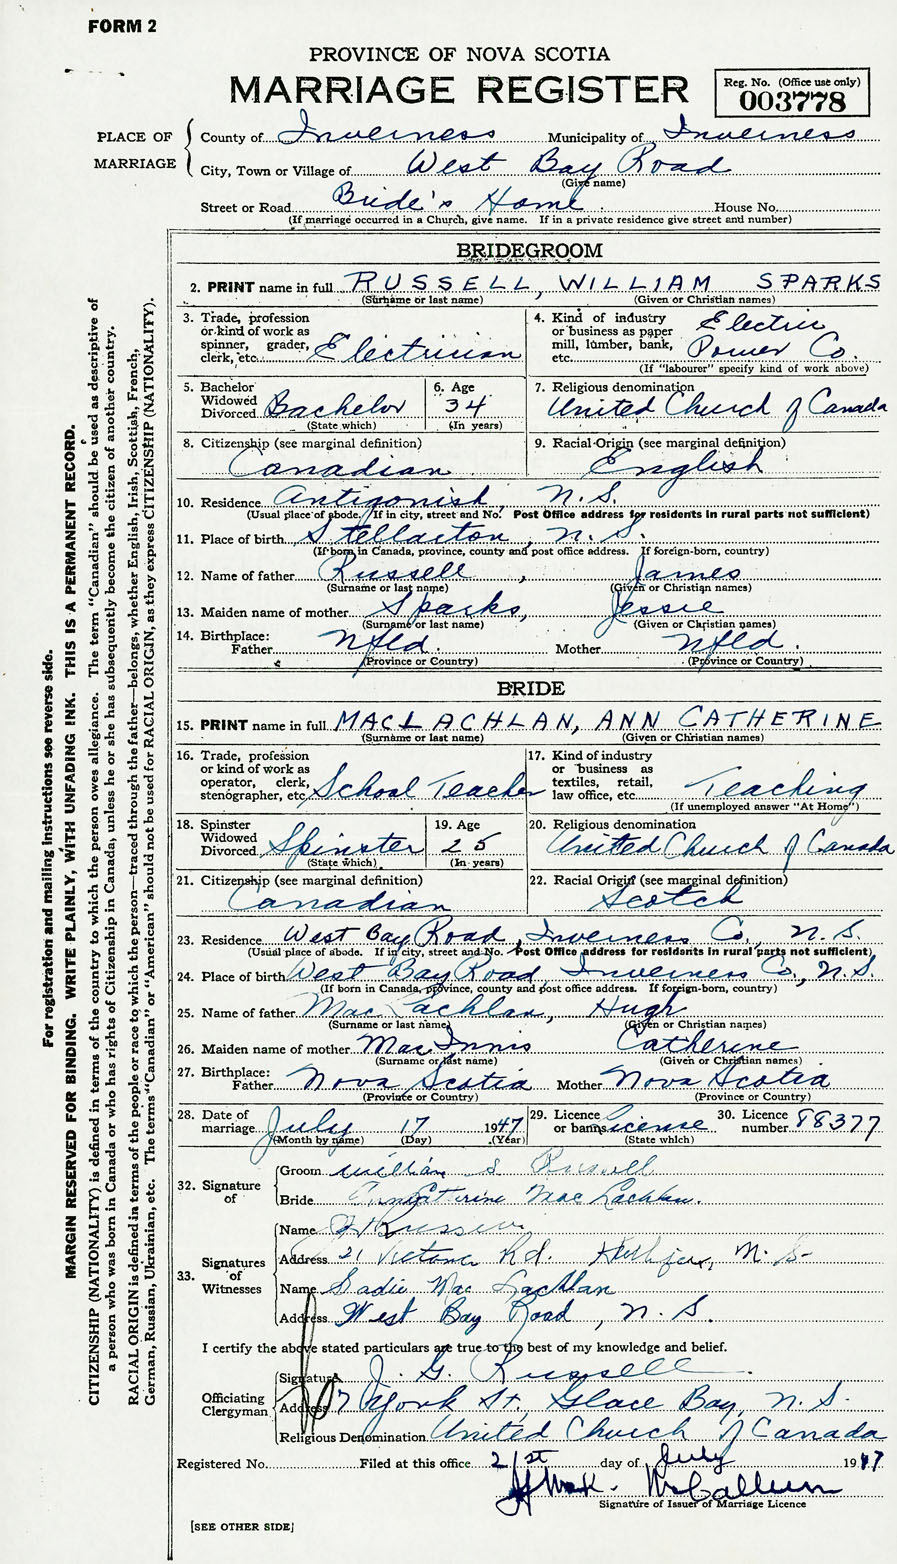 FORM 2
PROVINCE OF NOVA SCOTIA
MARRIAGE REGISTER
Reg. No. (Office use only)
003778
PLACE OF MARRIAGE
County of Inverness Municipality of Inverness
City, Town or Village of West Bay Road
(Give name)
Street or Road Bride's Home. House No.
(If marriage occurred in a Church, give name. If in a private residence give street and number)
BRIDEGROOM
2. PRINT name in full RUSSELL, WILLIAM SPARKS
(Surname or last name) (Given or Christian names)
3. Trade, profession or kind of work as spinner, grader, clerk, etc. Electrician
4. Kind of industry or business as paper mill, lumber, bank, etc. Electric Power Co.
(If "labourer" specify kind of work above)
5. Bachelor Widowed Divorced Bachelor
(State which)
6. Age 34
(In years)
7. Religious denomination
United Church of Canada
8. Citizenship (see marginal definition)
Canadian
9. Racial Origin (see marginal definition)
English
10. Residence Antigonish, N.S.
(Usual place of abode. If in city, street and No. Post Office address for residents in rural parts not sufficient)
11. Place of birth Stellarton, N.S.
(If born in Canada, province, county and post office address. If foreign-born, country)
12. Name of father Russell, James
(Surname or last name) (Given or Christian names)
13. Maiden name of mother Sparks, Jessie
(Surname or last name) (Given or Christian names)
14. Birthplace:
Father Nfld. Mother Nfld.
(Province or Country) (Province or Country)
BRIDE
15. PRINT name in full MACLACHLAN, ANN CATHERINE
(Surname or last name) (Given or Christian names)
16. Trade, profession or kind of work as operator, clerk, stenographer, etc School Teacher
17. Kind of industry or business as textiles, retail, law office, etc. Teaching
(If unemployed answer "At Home")
18. Spinster Widowed Divorced Spinster
(State which)
19. Age 25
(In years)
20. Religious denomination
United Church of Canada
21. Citizenship (see marginal definition)
Canadian
22. Racial Origin (see marginal definition)
Scotch
23. Residence West Bay Road, Inverness Co., N.S.
(Usual place of abode. If in city, street and No. Post Office address for residents in rural parts not sufficient)
24. Place of birth West Bay Road, Inverness Co., N.S.
(If born in Canada, province, county and post office address. If foreign-born, country)
25. Name of father Mac Lachlan, Hugh
(Surname or last name) (Given or Christian names)
26. Maiden name of mother Mac Innis Catherine
(Surname or last name) (Given or Christian names)
27. Birthplace:
Father Nova Scotia Mother Nova Scotia
(Province or Country) (Province or Country)
28. Date of marriage July 17 1947
(Month by name) (Day) (Year)
29. Licence or banns License
(State which)
30. Licence number 88377
32. Signature of
Groom William S. Russell
Bride Ann Catherine Mac Lachlan.
33. Signatures of Witnesses
Name Russell
Address 21 Victoria Rd. Halifax, N.S.
Name Sadie Mac Lachlan
Address West Bay Road, N.S.
I certify the above stated particulars are true to the best of my knowledge and belief.
Officiating Clergyman
Signature J. G. Russell
Address 7 York St. Glace Bay, N.S.
Religious Denomination United Church of Canada
Registered No. Filed at this office 21st day of July 1947
McCallum
Signature of Issuer of Marriage Licence
[SEE OTHER SIDE]
For registration and mailing instructions see reverse side.
MARGIN RESERVED FOR BINDING. WRITE PLAINLY, WITH UNFADING INK. THIS IS A PERMANENT RECORD.
CITIZENSHIP (NATIONALITY) is defined in terms of the country to which the person owes allegiance. The term "Canadian" should be used as descriptive of
a person who was born in Canada or who has rights of Citizenship in Canada, unless he or she has subsequently become the citizen of another country.
RACIAL ORIGIN is defined in terms of the people or race to which the person—traced through the father—belongs, whether English, Irish, Scottish, French,
German, Russian, Ukrainian, etc. The terms "Canadian" or "American" should not be used for RACIAL ORIGIN, as they express CITIZENSHIP (NATIONALITY).